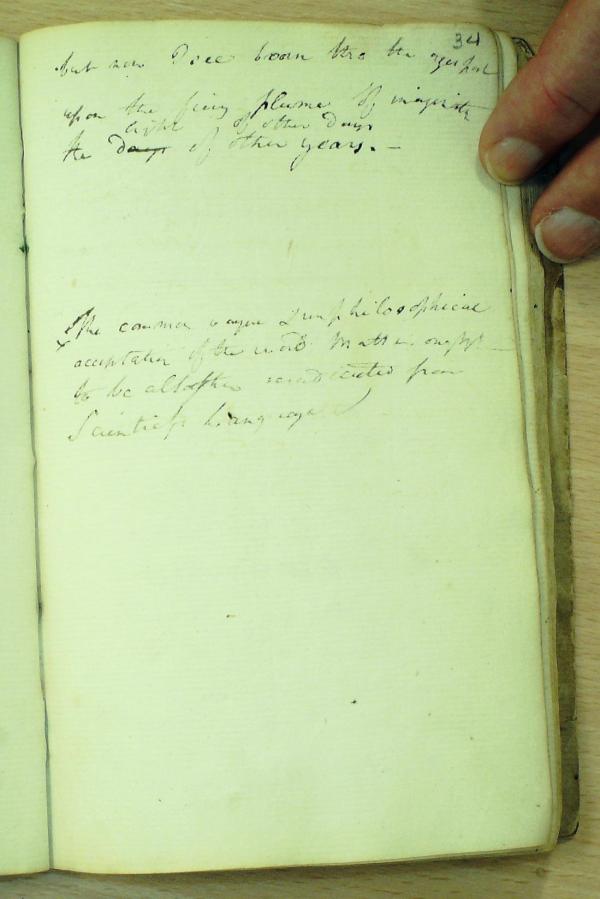 34
but now I see born thro the ages past
upon the fiery plume of majesty
light of other Days
the days of other years. —
The common vague & unphilosophical
acceptation of the word Matter ought
to be altogether eradicated from
Scientific Language